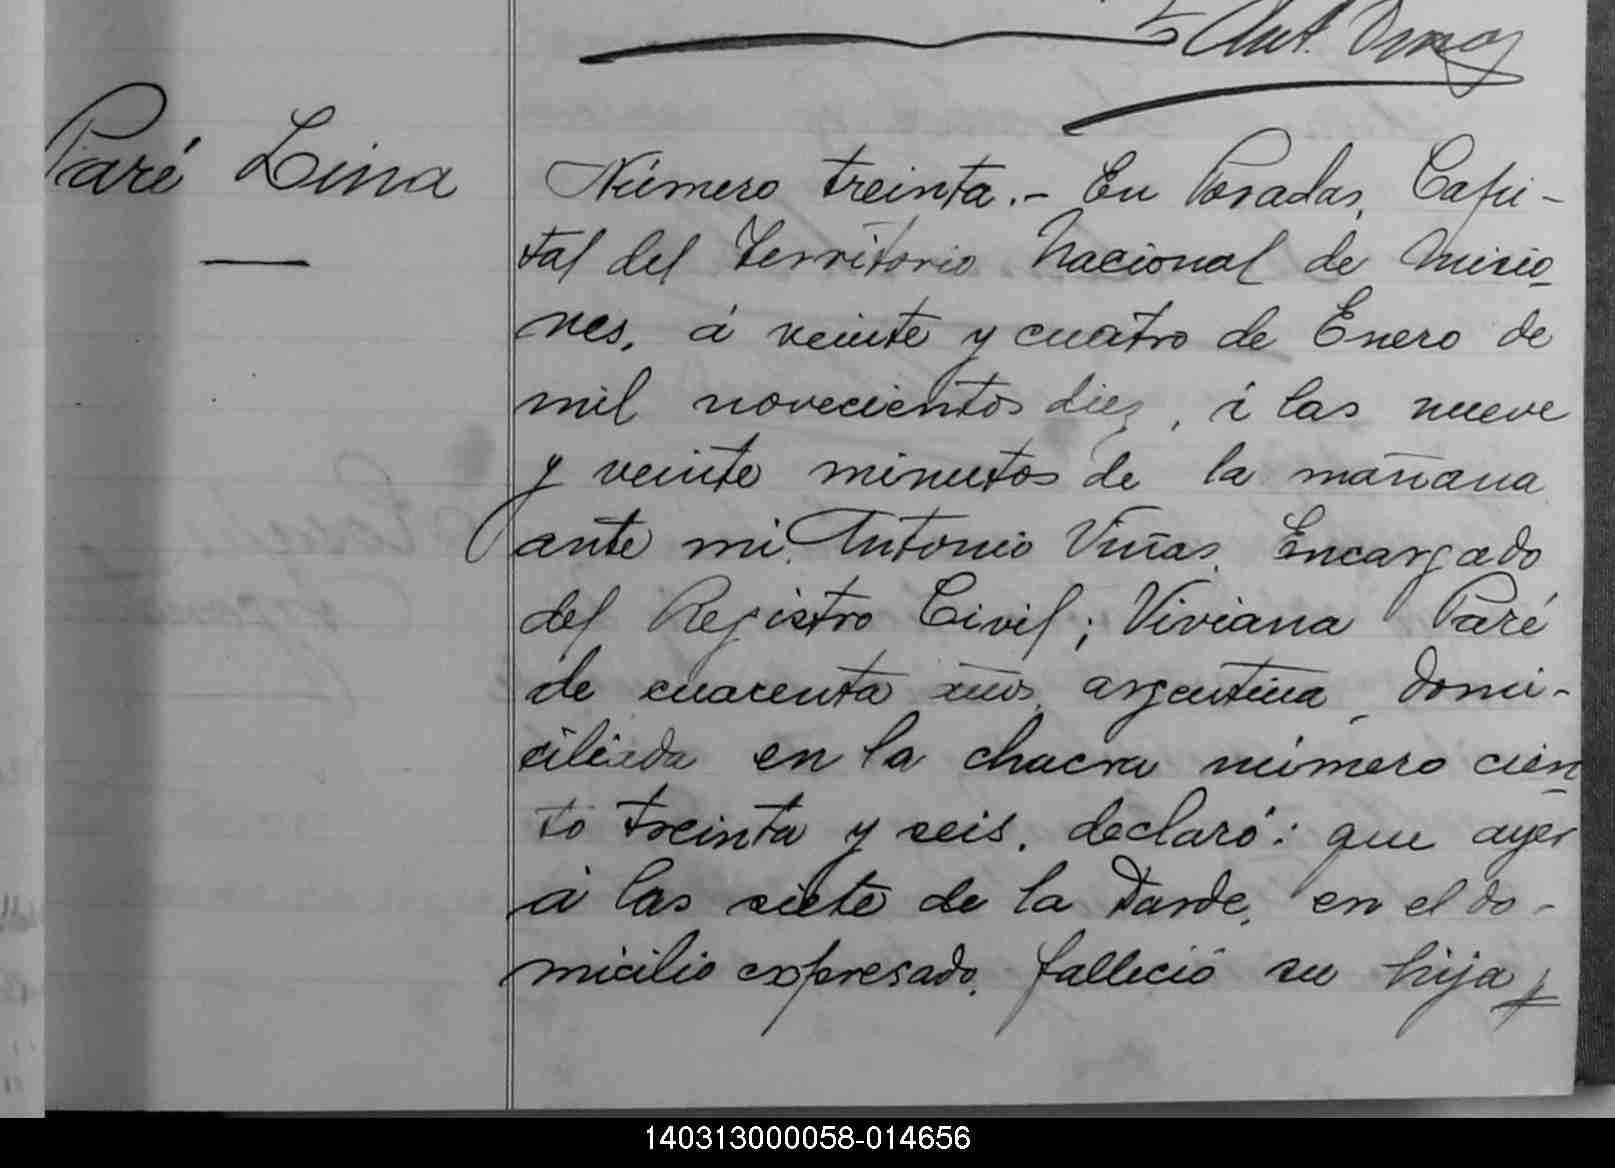 Ant. Viñas
Paré Lina
Número treinta.- En Posadas, Capi-
tal del Territorio Nacional de Misio-
nes, á veinte y cuatro de Enero de
mil novecientos diez, á las nueve
y veinte minutos de la mañana
ante mi, Antonio Viñas, Encargado
del Registro Civil; Viviana Paré
de cuarenta años, argentina, domi-
ciliada en la chacra número cien-
to treinta y seis, declaró: que ayer
á las siete de la tarde, en el do-
micilio expresado, falleció su hija
140313000058-014656